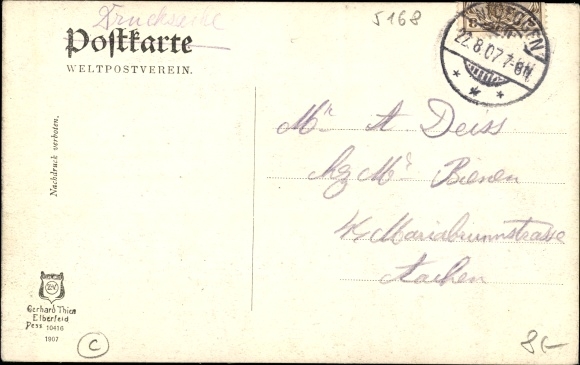 Drucksache
5168
Postkarte
WELTPOSTVEREIN.
22.8.07.7-8N.
Nachdruck verboten.
Mr A Deiss
Mr Bienen
Mariabrunnstrasse
Aachen
Gerhard Thien
Elberfeld
Dess 10416
1907
C
8-